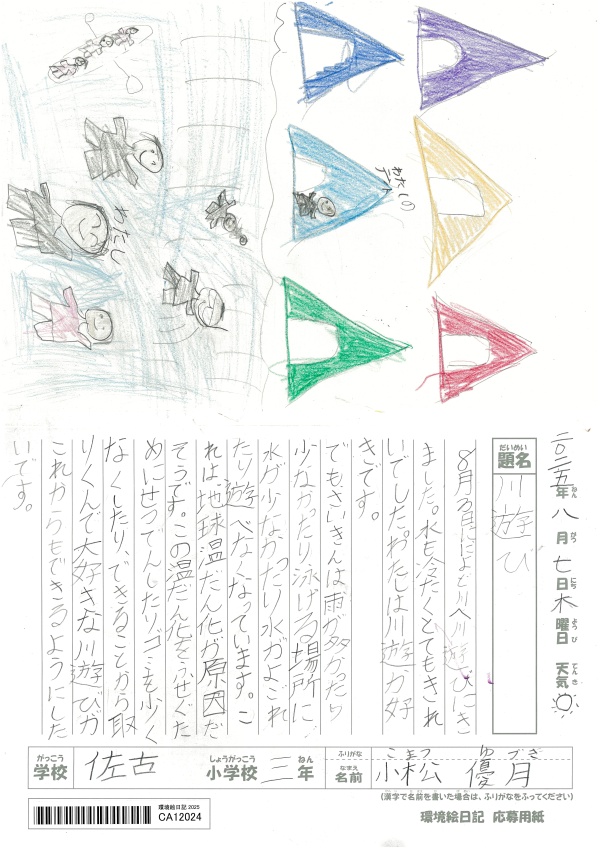 わたしの
テント
わたし
二〇二五年八月七日木曜日 天気
ねん がつ にち ようび てんき
だいめい
題名 川遊び
8月3日によど川へ川遊びにき
ました。水も冷たくとてもきれ
いでした。わたしは川遊が好
きです。
でもさいきんは雨が多かったり
少なかったり泳げる場所に
水が少なかったり水がよごれ
たり遊べなくなっています。こ
れは地球温だん化が原因だ
そうです。この温だん化をふせぐた
めにせつでんしたりゴミを少く
なくしたり、できることから取
りくんで大好きな川遊びが
これからもできるようにした
いです。
がっこう しょうがっこう ねん
学校 佐古 小学校 三年
ふりがな こまつ ゆづき
なまえ
名前 小松 優月
(漢字で名前を書いた場合は、ふりがなをふってください)
環境絵日記 2025
CA12024
環境絵日記 応募用紙